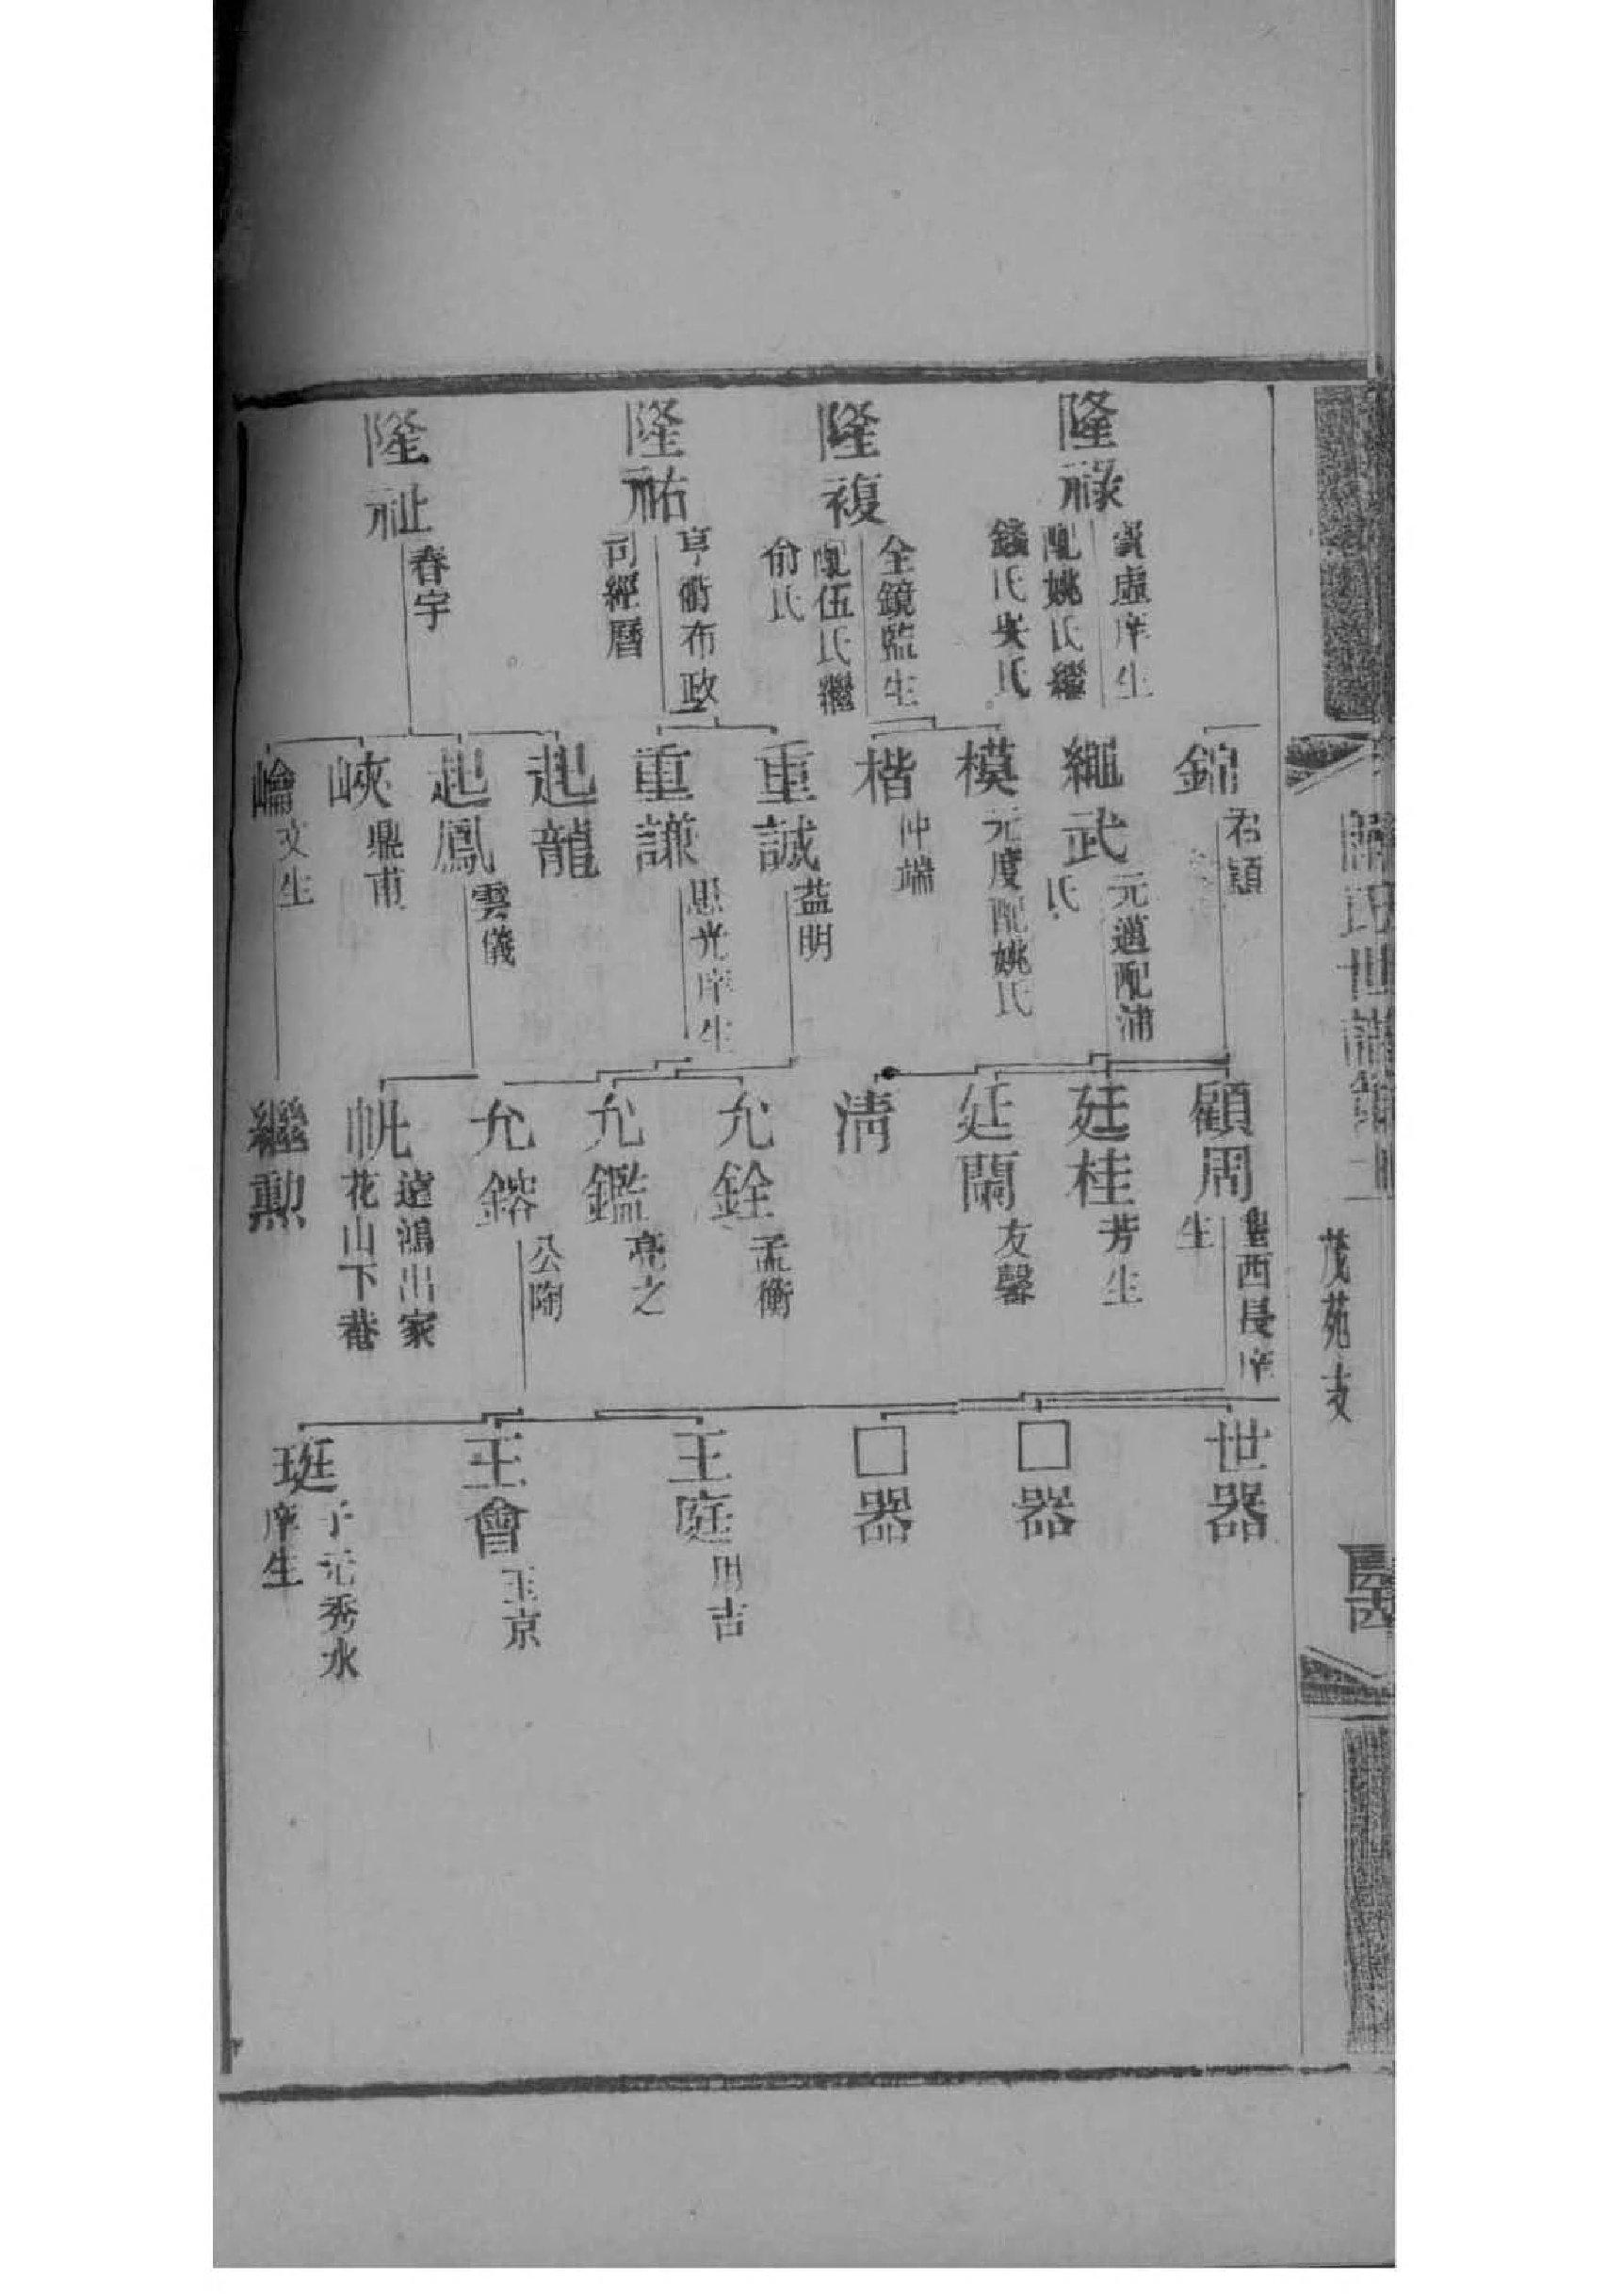 氏世譜
茂苑支
隆祿
虛庠生
配姚氏繼
錢氏吳氏
隆複
全鏡監生
配伍氏繼
俞氏
隆祐
亨衢布政
司經曆
隆祉
春宇
錦
君穎
繩武
元邁配浦
氏
模
元度配姚氏
楷
仲端
重誠
益明
重謙
思光庠生
起龍
起鳳
雲儀
峽
鼎甫
崘
文生
顧周
西長庠
生
廷桂
芳生
廷蘭
友馨
淸
允銓
孟衡
允鑑
亮之
允鎔
公陶
帆
遠鴻出家
花山下菴
繼勲
世器
□器
□器
王庭
用吉
王會
玉京
珽
子范秀水
庠生